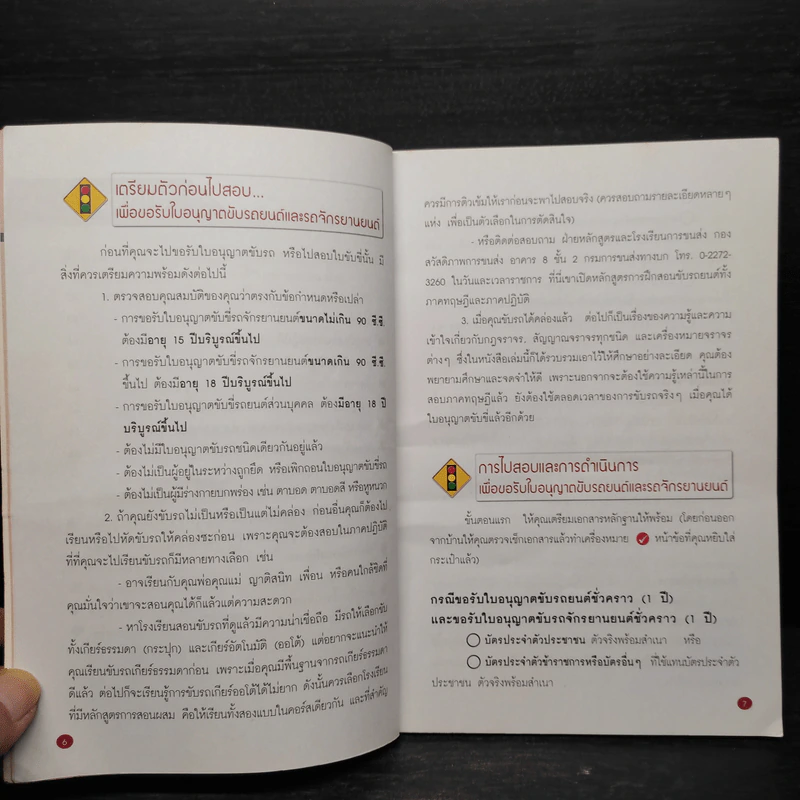 เตรียมตัวก่อนไปสอบ...
เพื่อขอรับใบอนุญาตขับรถยนต์และรถจักรยานยนต์
ก่อนที่คุณจะไปขอรับใบอนุญาตขับรถ หรือไปสอบใบขับขี่นั้น มี
สิ่งที่ควรเตรียมความพร้อมดังต่อไปนี้
1. ตรวจสอบคุณสมบัติของคุณว่าตรงกับข้อกำหนดหรือเปล่า
- การขอรับใบอนุญาตขับขี่รถจักรยานยนต์ขนาดไม่เกิน 90 ซี.ซี.
ต้องมีอายุ 15 ปีบริบูรณ์ขึ้นไป
- การขอรับใบอนุญาตขับขี่รถจักรยานยนต์ขนาดเกิน 90 ซี.ซี.
ขึ้นไป ต้องมีอายุ 18 ปีบริบูรณ์ขึ้นไป
- การขอรับใบอนุญาตขับขี่รถยนต์ส่วนบุคคล ต้องมีอายุ 18 ปี
บริบูรณ์ขึ้นไป
- ต้องไม่มีใบอนุญาตขับรถชนิดเดียวกันอยู่แล้ว
- ต้องไม่เป็นผู้อยู่ในระหว่างถูกยึด หรือเพิกถอนใบอนุญาตขับขี่รถ
- ต้องไม่เป็นผู้มีร่างกายบกพร่อง เช่น ตาบอด ตาบอดสี หรือหูหนวก
2. ถ้าคุณยังขับรถไม่เป็นหรือเป็นแต่ไม่คล่อง ก่อนอื่นคุณก็ต้องไป
เรียนหรือไปหัดขับรถให้คล่องซะก่อน เพราะคุณจะต้องสอบในภาคปฏิบัติ
ที่ที่คุณจะไปเรียนขับรถก็มีหลายทางเลือก เช่น
- อาจเรียนกับคุณพ่อคุณแม่ ญาติสนิท เพื่อน หรือคนใกล้ชิดที่
คุณมั่นใจว่าเขาจะสอนคุณได้ก็แล้วแต่ความสะดวก
- หาโรงเรียนสอนขับรถที่ดูแล้วมีความน่าเชื่อถือ มีรถให้เลือกขับ
ทั้งเกียร์ธรรมดา (กระปุก) และเกียร์อัตโนมัติ (ออโต้) แต่อยากจะแนะนำให้
คุณเรียนขับรถเกียร์ธรรมดาก่อน เพราะเมื่อคุณมีพื้นฐานจากรถเกียร์ธรรมดา
ดีแล้ว ต่อไปก็จะเรียนรู้การขับรถเกียร์ออโต้ได้ไม่ยาก ดังนั้นควรเลือกโรงเรียน
ที่มีหลักสูตรการสอนผสม คือให้เรียนทั้งสองแบบในคอร์สเดียวกัน และที่สำคัญ
6
ควรมีการติวเข้มให้เราก่อนจะพาไปสอบจริง (ควรสอบถามรายละเอียดหลายๆ
แห่ง เพื่อเป็นตัวเลือกในการตัดสินใจ)
- หรือติดต่อสอบถาม ฝ่ายหลักสูตรและโรงเรียนการขนส่ง กอง
สวัสดิภาพการขนส่ง อาคาร 8 ชั้น 2 กรมการขนส่งทางบก โทร. 0-2272-
3260 ในวันและเวลาราชการ ที่นี่เขาเปิดหลักสูตรการฝึกสอนขับรถยนต์ทั้ง
ภาคทฤษฎีและภาคปฏิบัติ
3. เมื่อคุณขับรถได้คล่องแล้ว ต่อไปก็เป็นเรื่องของความรู้และความ
เข้าใจเกี่ยวกับกฎจราจร, สัญญาณจราจรทุกชนิด และเครื่องหมายจราจร
ต่างๆ ซึ่งในหนังสือเล่มนี้ก็ได้รวบรวมเอาไว้ให้ศึกษาอย่างละเอียด คุณต้อง
พยายามศึกษาและจดจำให้ดี เพราะนอกจากจะต้องใช้ความรู้เหล่านี้ในการ
สอบภาคทฤษฎีแล้ว ยังต้องใช้ตลอดเวลาของการขับรถจริงๆ เมื่อคุณได้
ใบอนุญาตขับขี่แล้วอีกด้วย
การไปสอบและการดำเนินการ
เพื่อขอรับใบอนุญาตขับรถยนต์และรถจักรยานยนต์
ขั้นตอนแรก ให้คุณเตรียมเอกสารหลักฐานให้พร้อม (โดยก่อนออก
จากบ้านให้คุณตรวจเช็กเอกสารแล้วทำเครื่องหมาย หน้าข้อที่คุณหยิบใส่
กระเป๋าแล้ว)
กรณีขอรับใบอนุญาตขับรถยนต์ชั่วคราว (1 ปี)
และขอรับใบอนุญาตขับรถจักรยานยนต์ชั่วคราว (1 ปี)
บัตรประจำตัวประชาชน ตัวจริงพร้อมสำเนา หรือ
บัตรประจำตัวข้าราชการหรือบัตรอื่นๆ ที่ใช้แทนบัตรประจำตัว
ประชาชน ตัวจริงพร้อมสำเนา
7